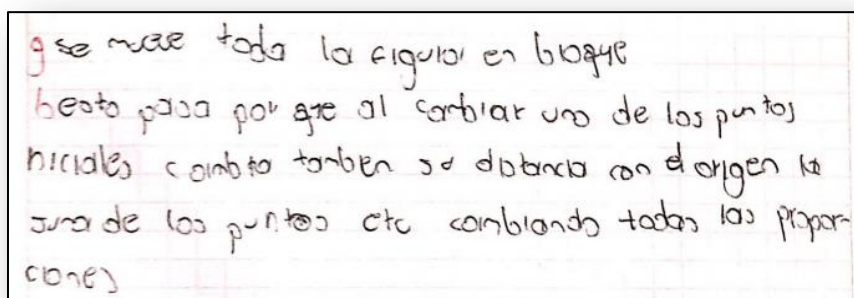 g se mueve toda la figura en bloque
h esto pasa por que al cambiar uno de los puntos
niciales cambia tanben su distancia con el origen la
suma de los puntos etc cambiando todas las propor-
ciones